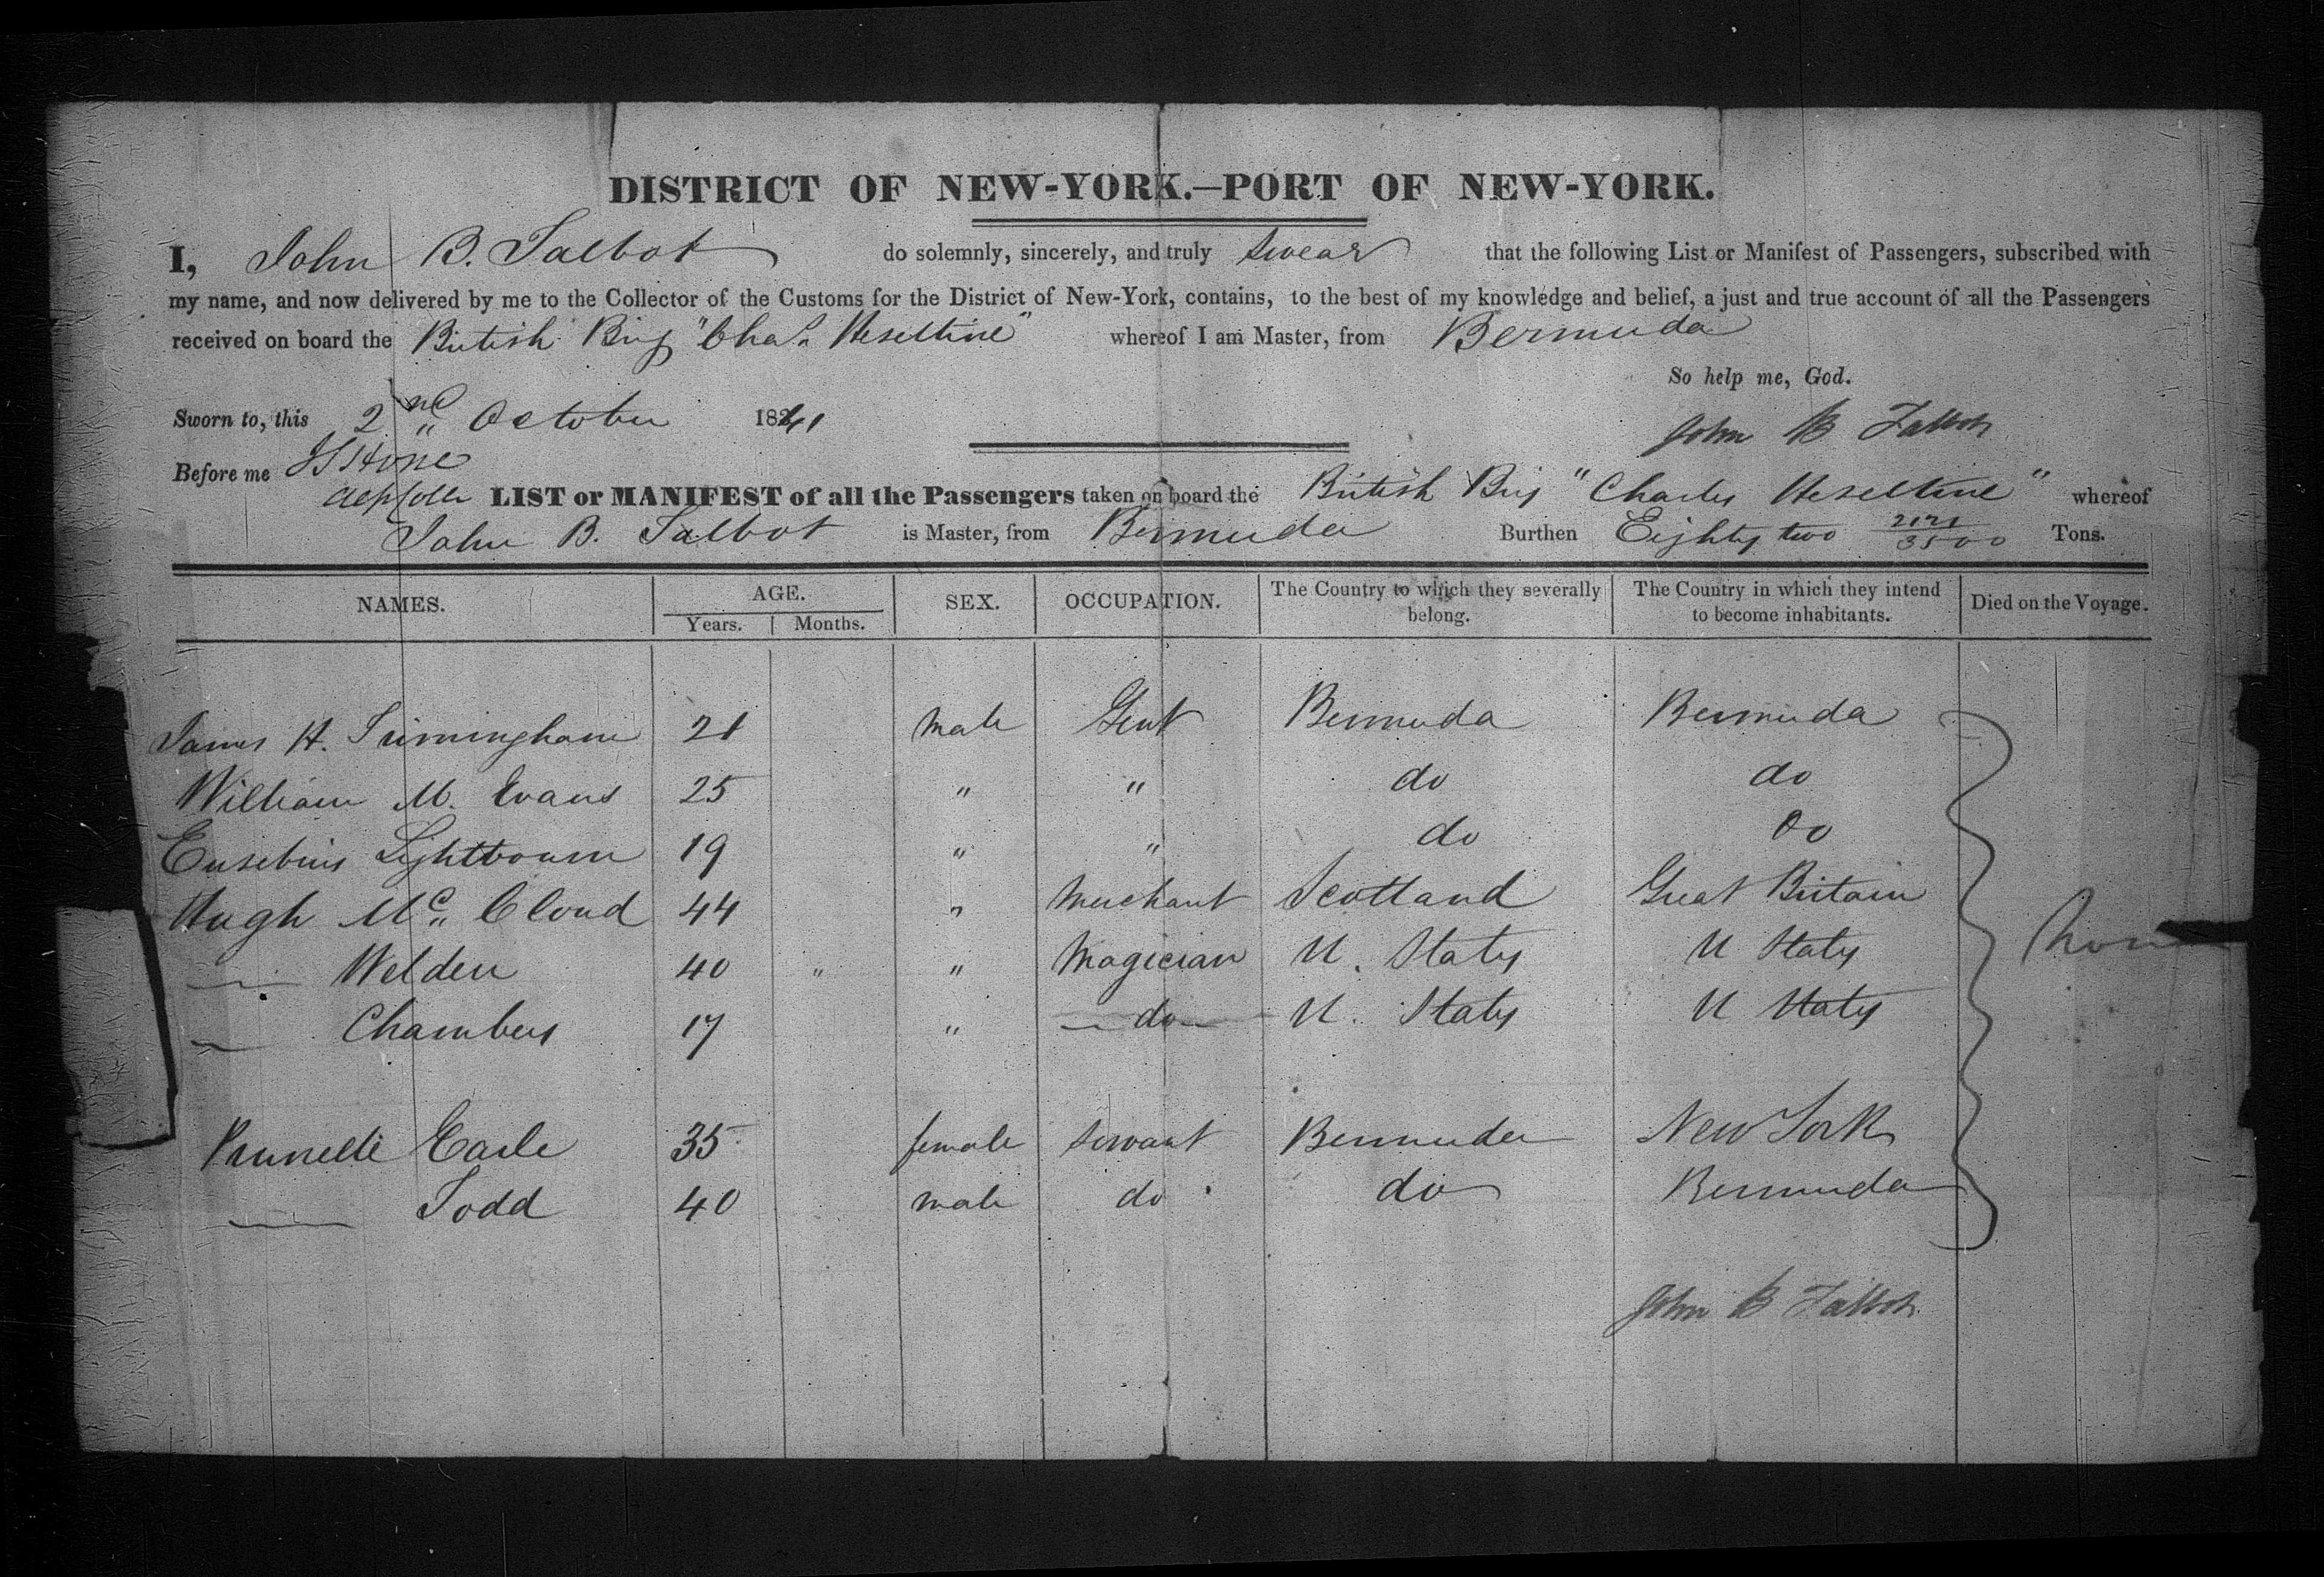 DISTRICT OF NEW-YORK.—PORT OF NEW-YORK.
I, John B. Talbot do solemnly, sincerely, and truly swear that the following List or Manifest of Passengers, subscribed with
my name, and now delivered by me to the Collector of the Customs for the District of New-York, contains, to the best of my knowledge and belief, a just and true account of all the Passengers
received on board the British Brig "Chas. Heseltine" whereof I am Master, from Bermuda
So help me, God.
Sworn to, this 2nd October 1841 John B Talbot
Before me
LIST or MANIFEST of all the Passengers taken on board the British Brig "Charles Heseltine" whereof
John B. Talbot is Master, from Bermuda Burthen Eighty two 2121/3500 Tons.
NAMES. AGE. SEX. OCCUPATION. The Country to which they severally belong. The Country in which they intend to become inhabitants. Died on the Voyage.
Years. Months.
James H. Trimingham 21 male Gent Bermuda Bermuda
William M. Evans 25 " " do do
Eusebius Lightbourn 19 " " do Do
Hugh Mc. Cloud 44 " Merchant Scotland Great Britain
— Welden 40 " " Magician U. States U States
— Chambers 17 " — do — U. States U States
Earle 35 female servant Bermuda New York
— Todd 40 male do do Bermuda
John B Talbot